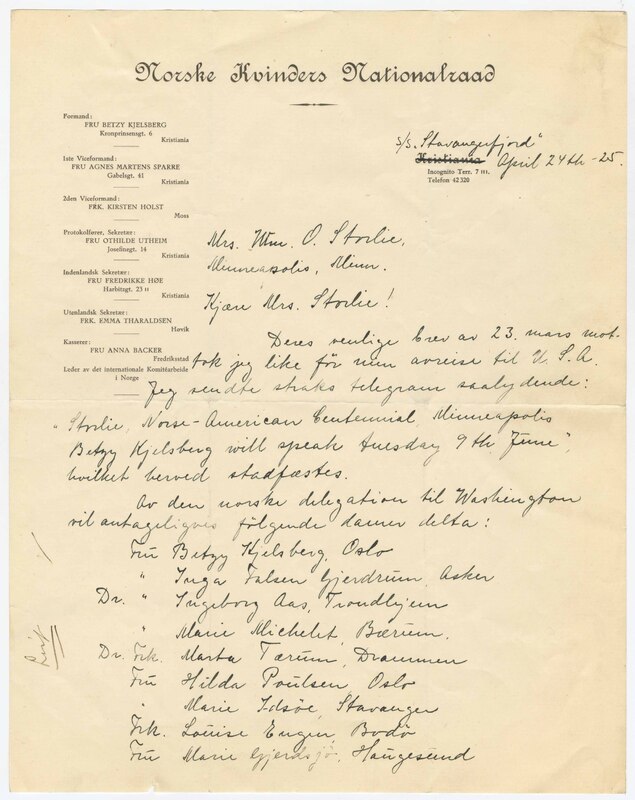 Norske Kvinders Nationalraad
Formand:
FRU BETZY KJELSBERG
Kronprinsensgt. 6
Kristiania
1ste Viceformand:
FRU AGNES MARTENS SPARRE
Gabelsgt. 41
Kristiania
2den Viceformand:
FRK. KIRSTEN HOLST
Moss
Protokolfører, Sekretær:
FRU OTHILDE UTHEIM
Josefinegt. 14
Kristiania
Indenlandsk Sekretær:
FRU FREDRIKKE HØE
Harbitzgt. 23 II
Kristiania
Utenlandsk Sekretær:
FRK. EMMA THARALDSEN
Høvik
Kasserer:
FRU ANNA BACKER
Fredriksstad
Leder av det internationale Komitéarbeide
i Norge
S/S. "Stavangerfjord"
Kristiania April 24th - 25.
Incognito Terr. 7 III.
Telefon 42 320
Mrs. Wm. O. Storlie,
Minneapolis, Minn.
Kjære Mrs. Storlie!
Deres venlige brev av 23. mars mot-
tok jeg like før min avreise til U. S. A.
Jeg sendte straks telegram saalydende:
"Storlie, Norse-American Centennial, Minneapolis
Betzy Kjelsberg will speak tuesday 9th June",
hvilket herved stadfæstes.
Av den norske delegation til Washington
vil antageligvis følgende damer delta:
Fru Betzy Kjelsberg, Oslo
" Inga Falsen Gjerdrum, Asker
Dr. " Ingeborg Aas, Trondhjem
" Marie Michelet, Bærum.
Dr. Frk. Marta Tærum, Drammen
Fru Hilda Poulsen, Oslo
" Marie Idsöe Stavanger
Frk. Louise Enger, Bodø
Fru Marie Gjerdsjø, Haugesund